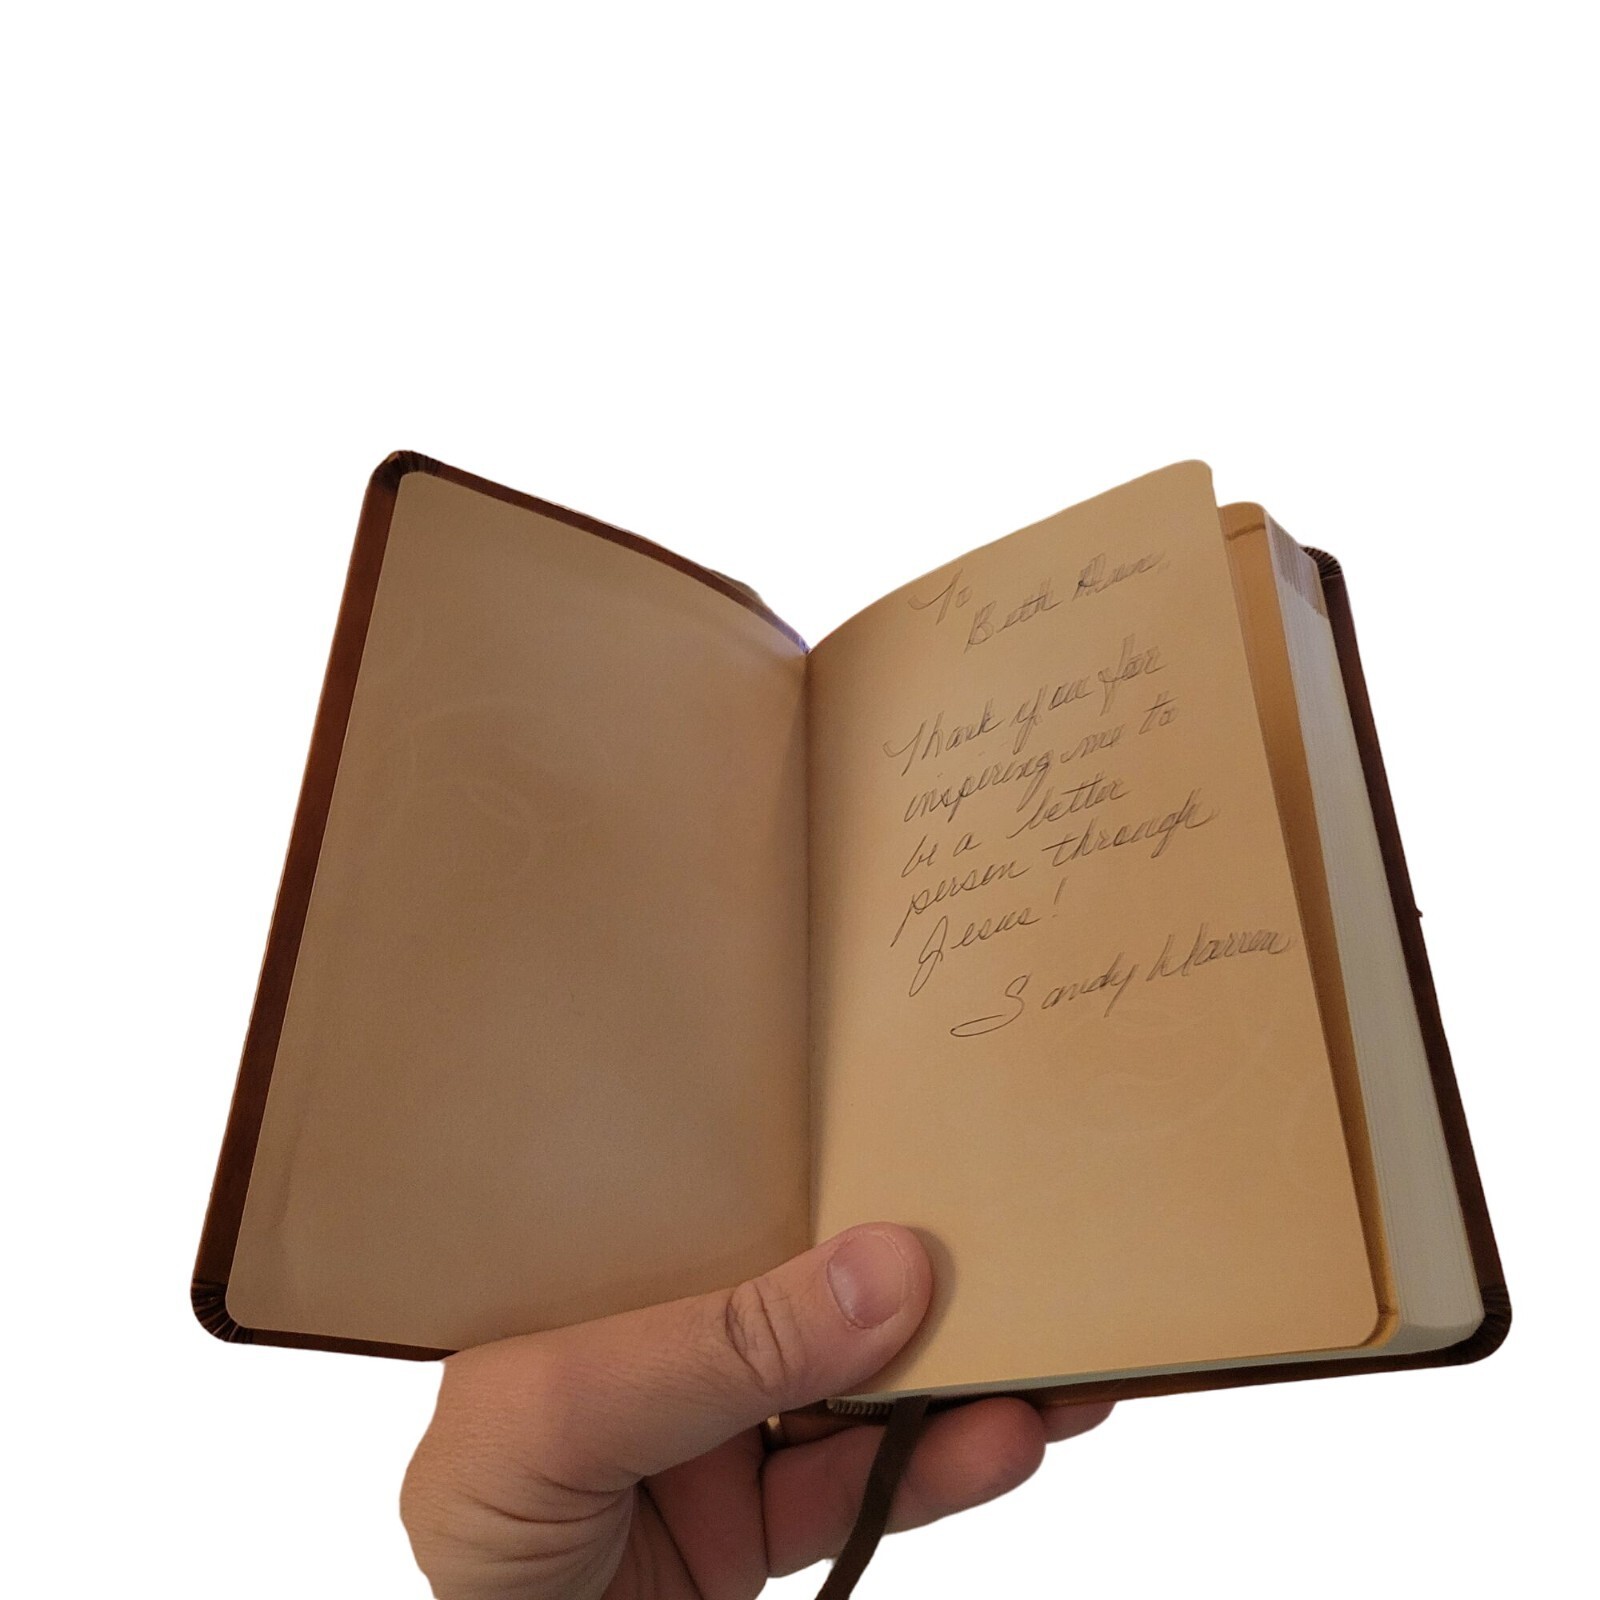 To
Beth
Thank you for
inspiring me to
be a better
person through
Jesus!
Sandy Warren